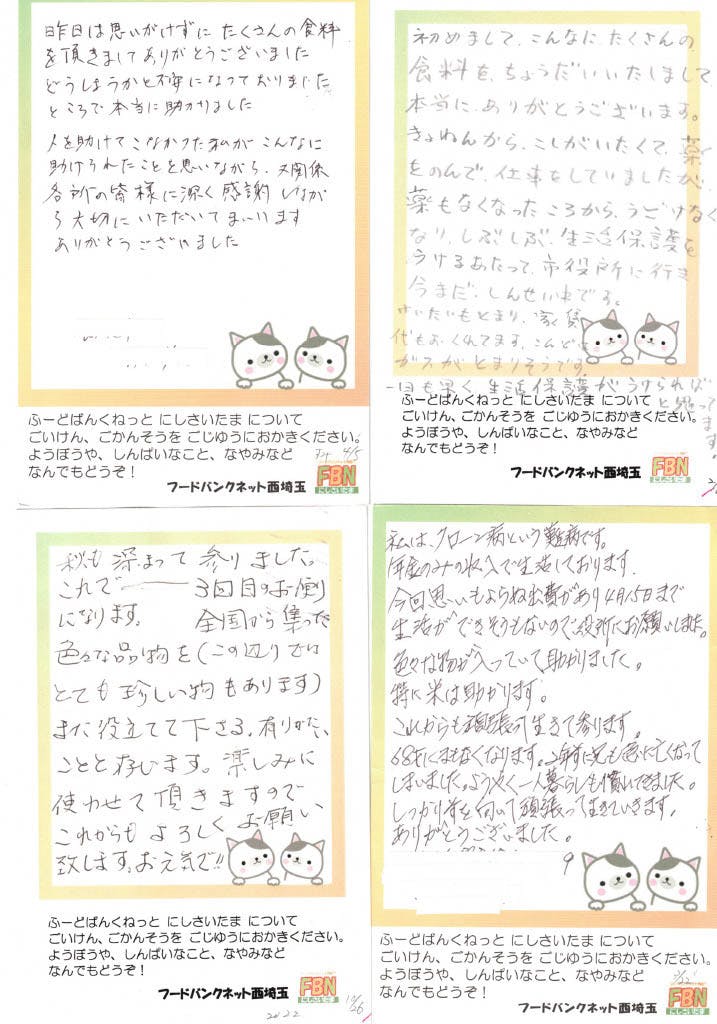 昨日は思いがけずに たくさんの食料
を頂きましてありがとうございました
どうしようかと不安になっておりました
ところで本当に助かりました
人を助けてこなかった私が こんなに
助けられたことを思いながら、又関係
各所の皆様に深く感謝しなが
ら大切にいただいてまいります
ありがとうございました
ふーどばんくねっと にしさいたま について
ごいけん、ごかんそうを ごじゆうにおかきください。
ようぼうや、しんぱいなこと、なやみなど
なんでもどうぞ！
4/5
フードバンクネット西埼玉
FBN
にしさいたま
初めまして、こんなに、たくさんの
食料を、ちょうだいいたしまして
本当に、ありがとうございます。
きょねんから、こしがいたくて、薬
をのんで、仕事をしていましたが、
薬もなくなったころから、うごけなく
なり、しぶしぶ、生活保護を
うけるあたって、市役所に行き
今まだ、しんせい中です。
けいたいもとまり、家賃
代もおくれてます、こんど、
ガスがとまりそうです。
一日も早く 生活保護がうけられれば
と思って
ます。
ふーどばんくねっと にしさいたま について
ごいけん、ごかんそうを ごじゆうにおかきください。
ようぼうや、しんぱいなこと、なやみなど
なんでもどうぞ！
フードバンクネット西埼玉
FBN
にしさいたま
秋も 深まって 参りました。
これで 3回目のお便り
になります。 全国から集った
色々な品物を(この辺りでは
とても 珍しい物もあります)
また 役立てて下さる、有りがたい
ことと存じます。楽しみに
使わせて頂きますので
これからも よろしく お願い
致します。お元気で!!
ふーどばんくねっと にしさいたま について
ごいけん、ごかんそうを ごじゆうにおかきください。
ようぼうや、しんぱいなこと、なやみなど
なんでもどうぞ！
フードバンクネット西埼玉
FBN
にしさいたま
2022
10/26
私は、クローン病という難病です。
年金のみの収入で生活しております。
今回思いもよらね出費があり4月15日まで
生活ができそうもないので役所にお願いしました。
色々な物が入っていて助かりました。
特に米は助かります。
これからも頑張り生きて参ります。
68才にまもなくなります。2年前に兄も急に亡くなって
しまいました。ようやく一人暮らしも慣れてきました。
しっかり前を向いて頑張って生きていきます。
ありがとうございました。
ふーどばんくねっと にしさいたま について
ごいけん、ごかんそうを ごじゆうにおかきください。
ようぼうや、しんぱいなこと、なやみなど
なんでもどうぞ！
フードバンクネット西埼玉
FBN
にしさいたま